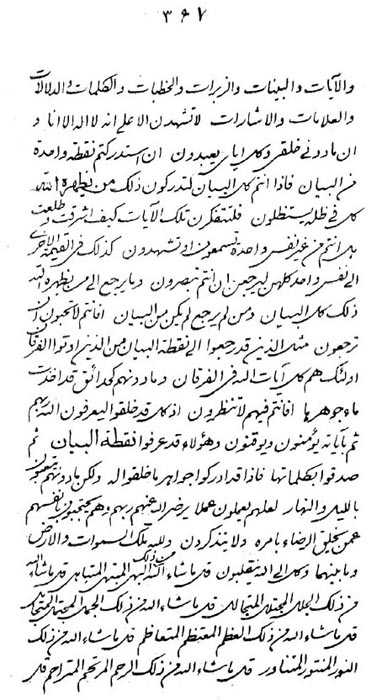 ٣٦٧
والآيات والبينات والزبرات والخطبات والكلمات والدلالات
والعلامات والاشارات لاتشهدن الاعلى انه لااله الاانا و
ان مادوني خلقي وكل اياي يعبدون ان استدركتم نقطة واحدة
من البيان فاذا انتم كل البيان لتدركون ذلك من يظهره الله
كل في ظله يستظلون فلتتفكرن تلك الآيات كيف اشرقت وطلعت
هل انتم من غير نفس واحدة تسمعون او تشهدون كذلك في القيمة الاخرى
الى نفس واحد كلهن ليرجعن ان انتم تبصرون ومايرجع الى من يظهره الله
ذلك كل البيان ومن لم يرجع لم يكن من البيان افانتم لاتحبون ان
ترجعون مثل الذين قد رجعوا الى نقطة البيان من الذين اوتوا الفرقان
اولئك هم كل آيات الله في الفرقان ومادونهم كحدائق قد اخذت
ماء جوهرها افانتم فيهم لاتنظرون اذ كل قد خلقوا ليعرفون الله ربهم
ثم بآياته يؤمنون ويوقنون وهؤلاء قد عرفوا نقطة البيان ثم
صدقوا بكلماتها فاذا قد ادركوا جواهر ماخلقوا له ولكن مادونهم يتعبون
بالليل والنهار لعلهم يعملون عملا يرضى الله عنهم ربهم وهم يحتجبون بانفسهم
عمن يخلق الرضاء بامره ولا يتذكرون ولله تلك السموات والارض
وما بينهما وكل الى الله ينقلبون قل ماشاء الله من ذلك البهي المبتهي المتباهي قل ماشاء الله
من ذلك الجلل المجتلل المتجالل قل ماشاء الله من ذلك الجمل المجتمل المتجامل
قل ماشاء الله من ذلك العظم المعتظم المتعاظم قل ماشاء الله من ذلك
النور المنتور المتناور قل ماشاء الله من ذلك الرحم المرتحم المتراحم قل